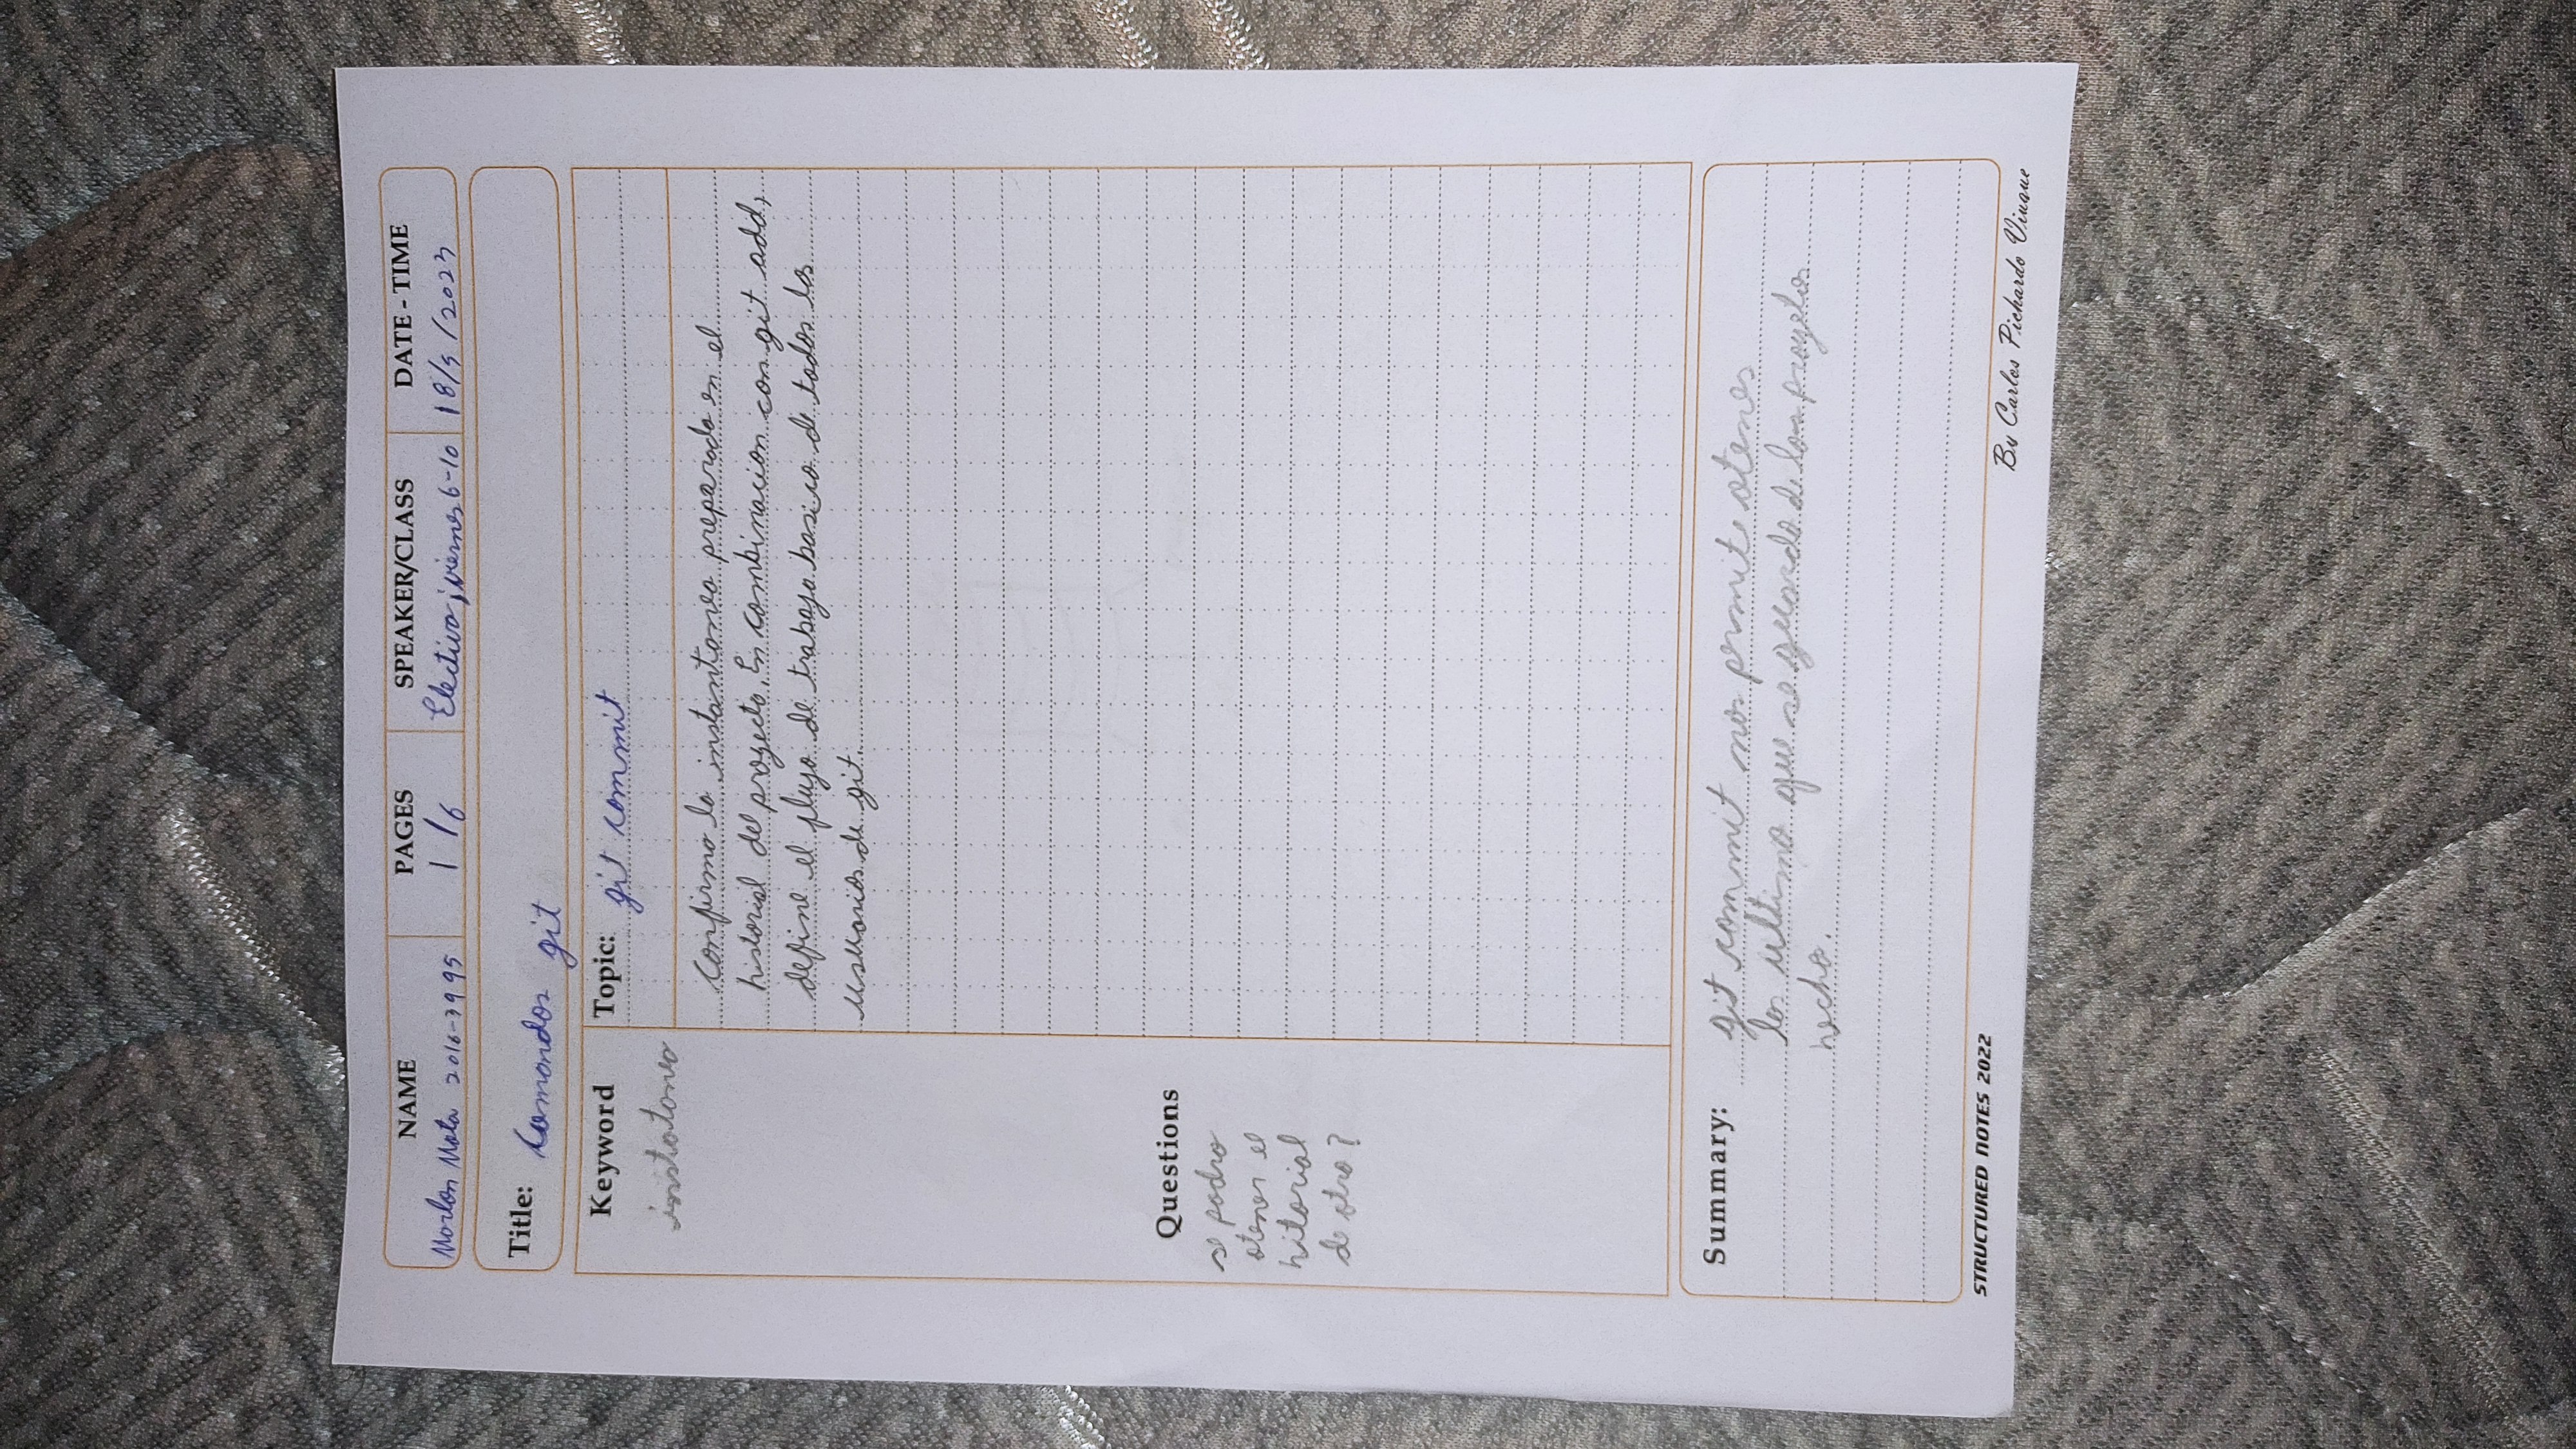 NAME PAGES SPEAKER/CLASS DATE - TIME
Marlon Mota 2016-3995 1/6 Electiva j; viernes 6-10 18/5/2023
Title: Comandos git
Keyword
instatanea
Topic: git commit
Confirma la instantanea preparada en el
historial del proyecto. En combinacion con git add,
define el flujo de trabajo basico de todos los
usuarios de git.
Questions
se podra
otener el
hitorial
de otro?
Summary: git commit nos permite otener
los ultimo que se guardo de los proyetos
hecho.
STRUCTURED NOTES 2022
By Carlos Pichardo Viuque